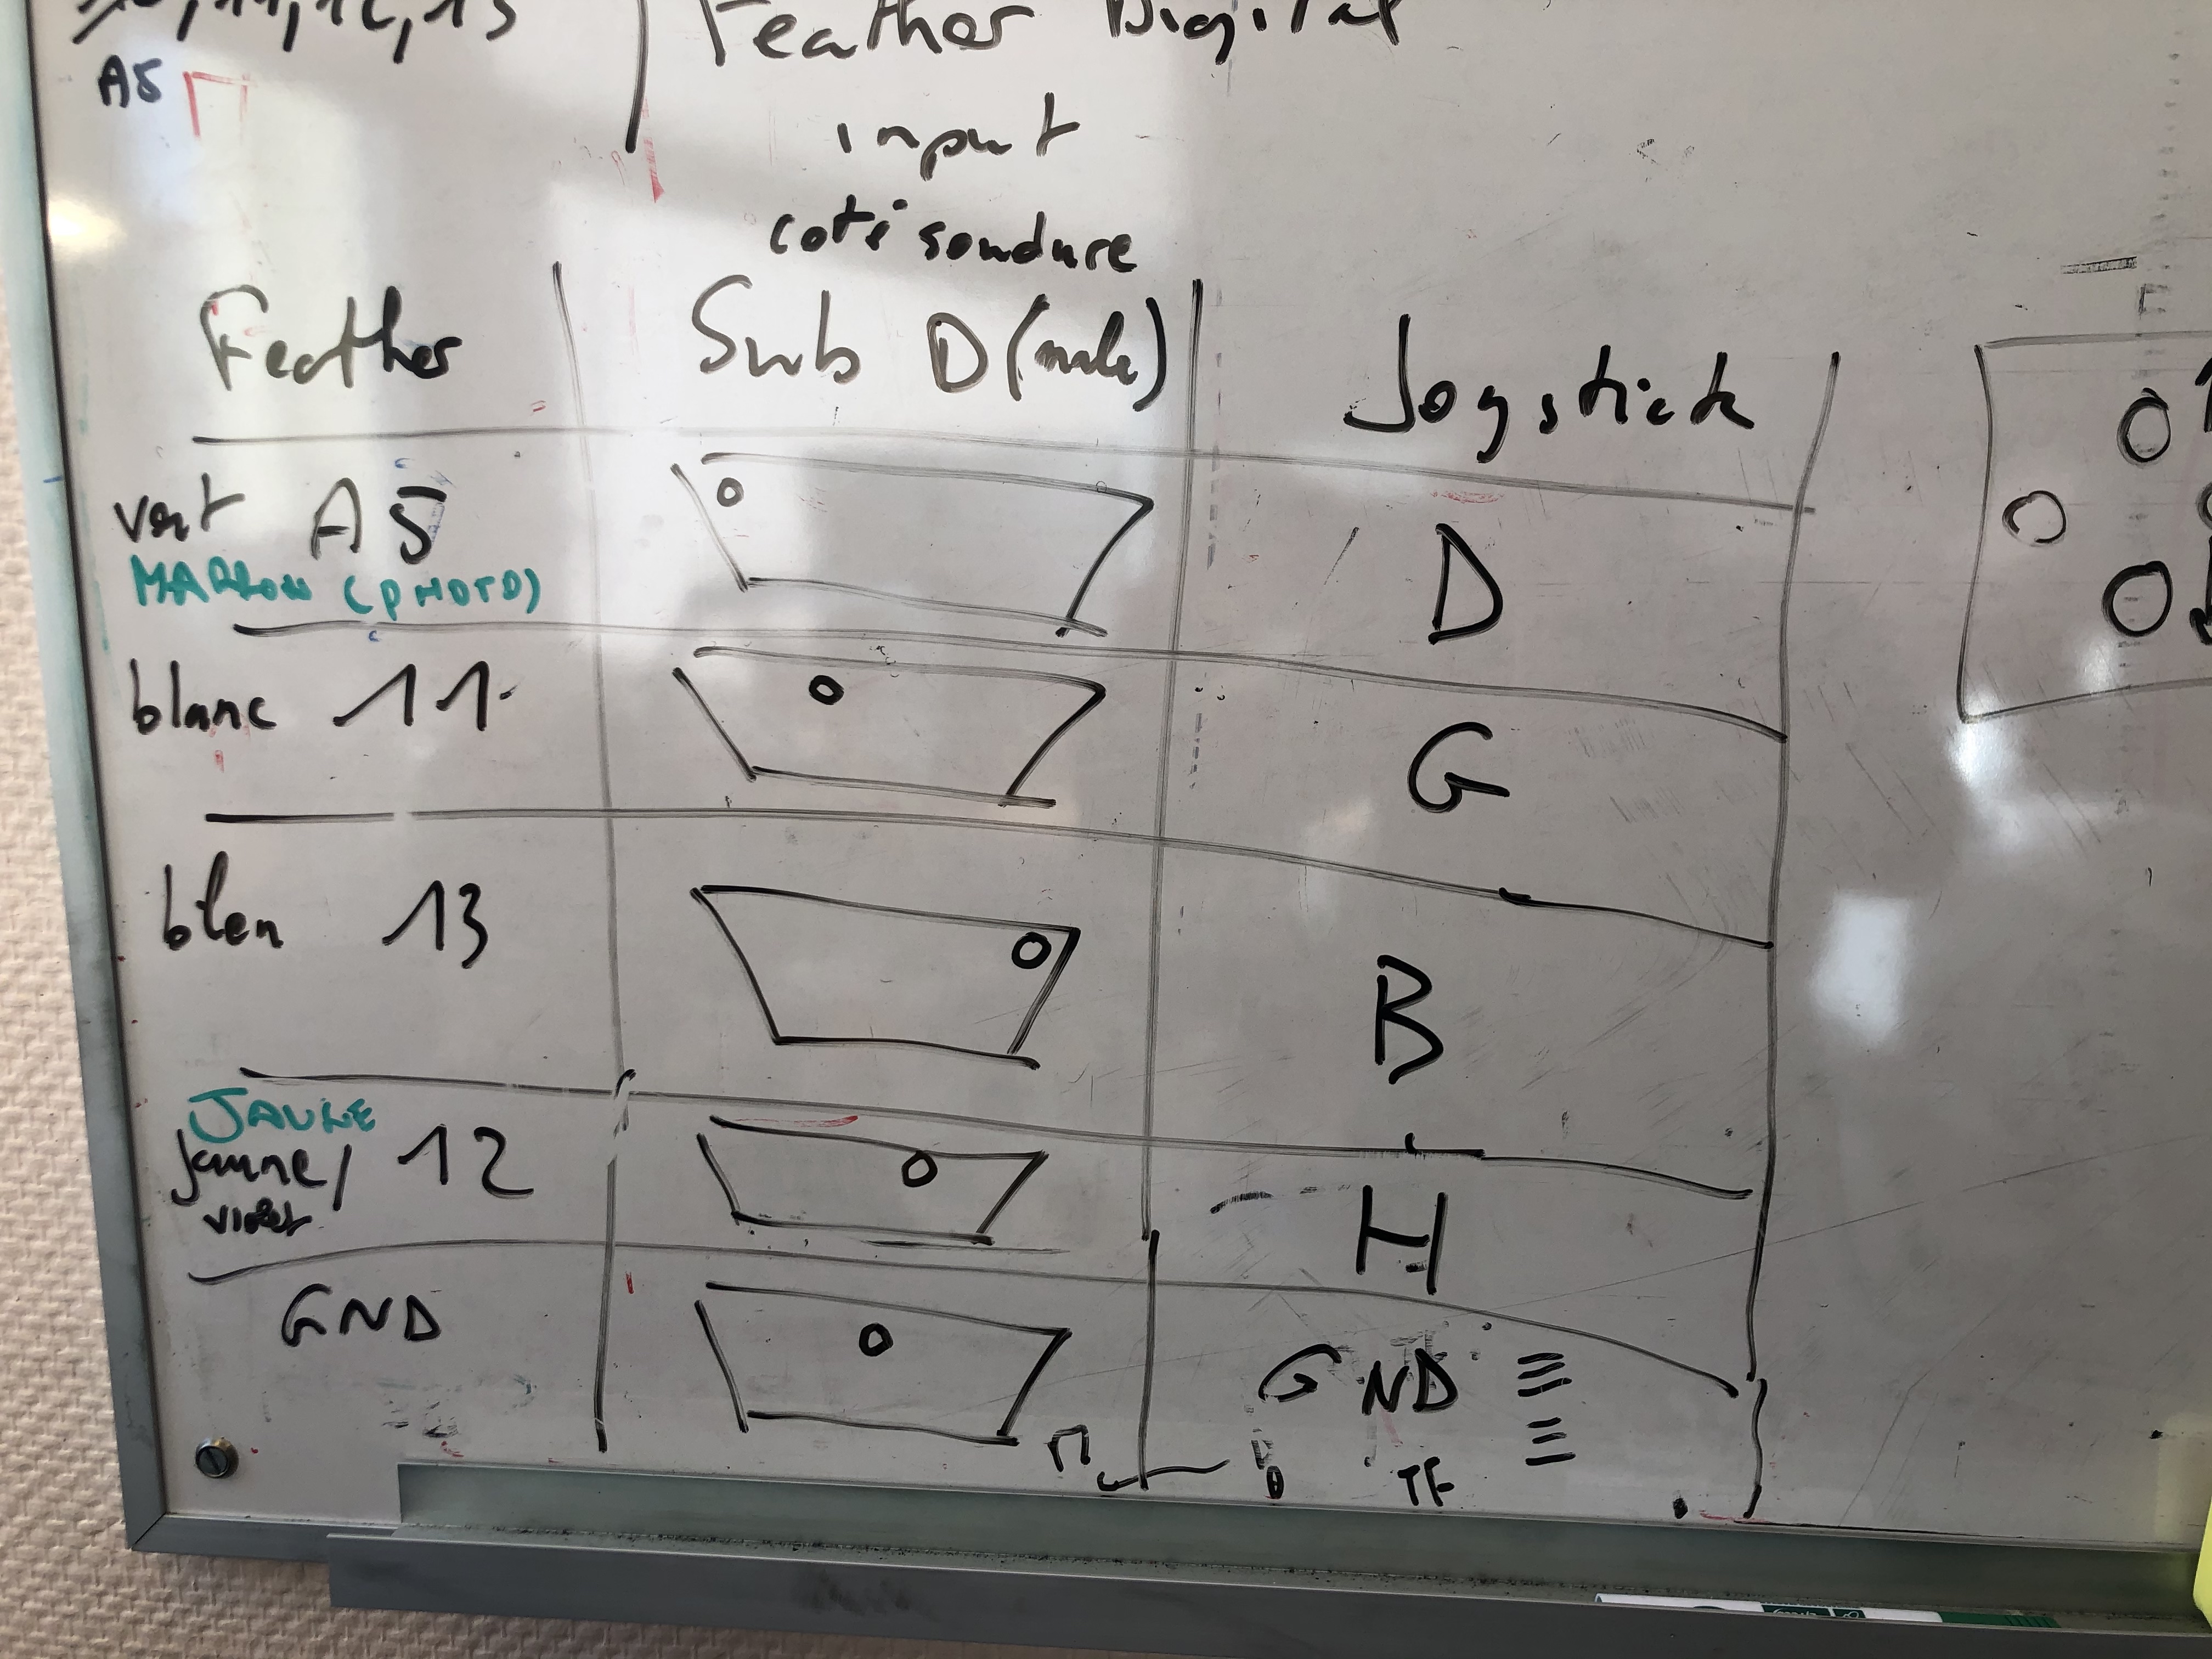 10,11,12,13
Feather Digital
A5
input
coté soudure
Feather
Sub D (male)
Joystick
vert A5
MARRON (PHOTO)
D
blanc 11
G
bleu 13
B
JAUNE
jaune/ 12
violet
H
GND
GND